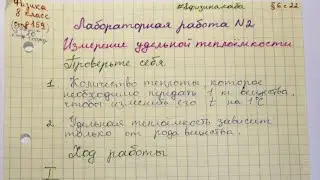 Физика
8 класс
стр 169
#1физикалаба
§6 с 22
Лабораторная работа №2
Измерение удельной теплоёмкости
Проверьте себя
1. Количество теплоты, которое
необходимо передать 1 кг вещества,
чтобы изменить его t на 1°C
2. Удельная теплоёмкость зависит
только от рода вещества.
Ход работы
I